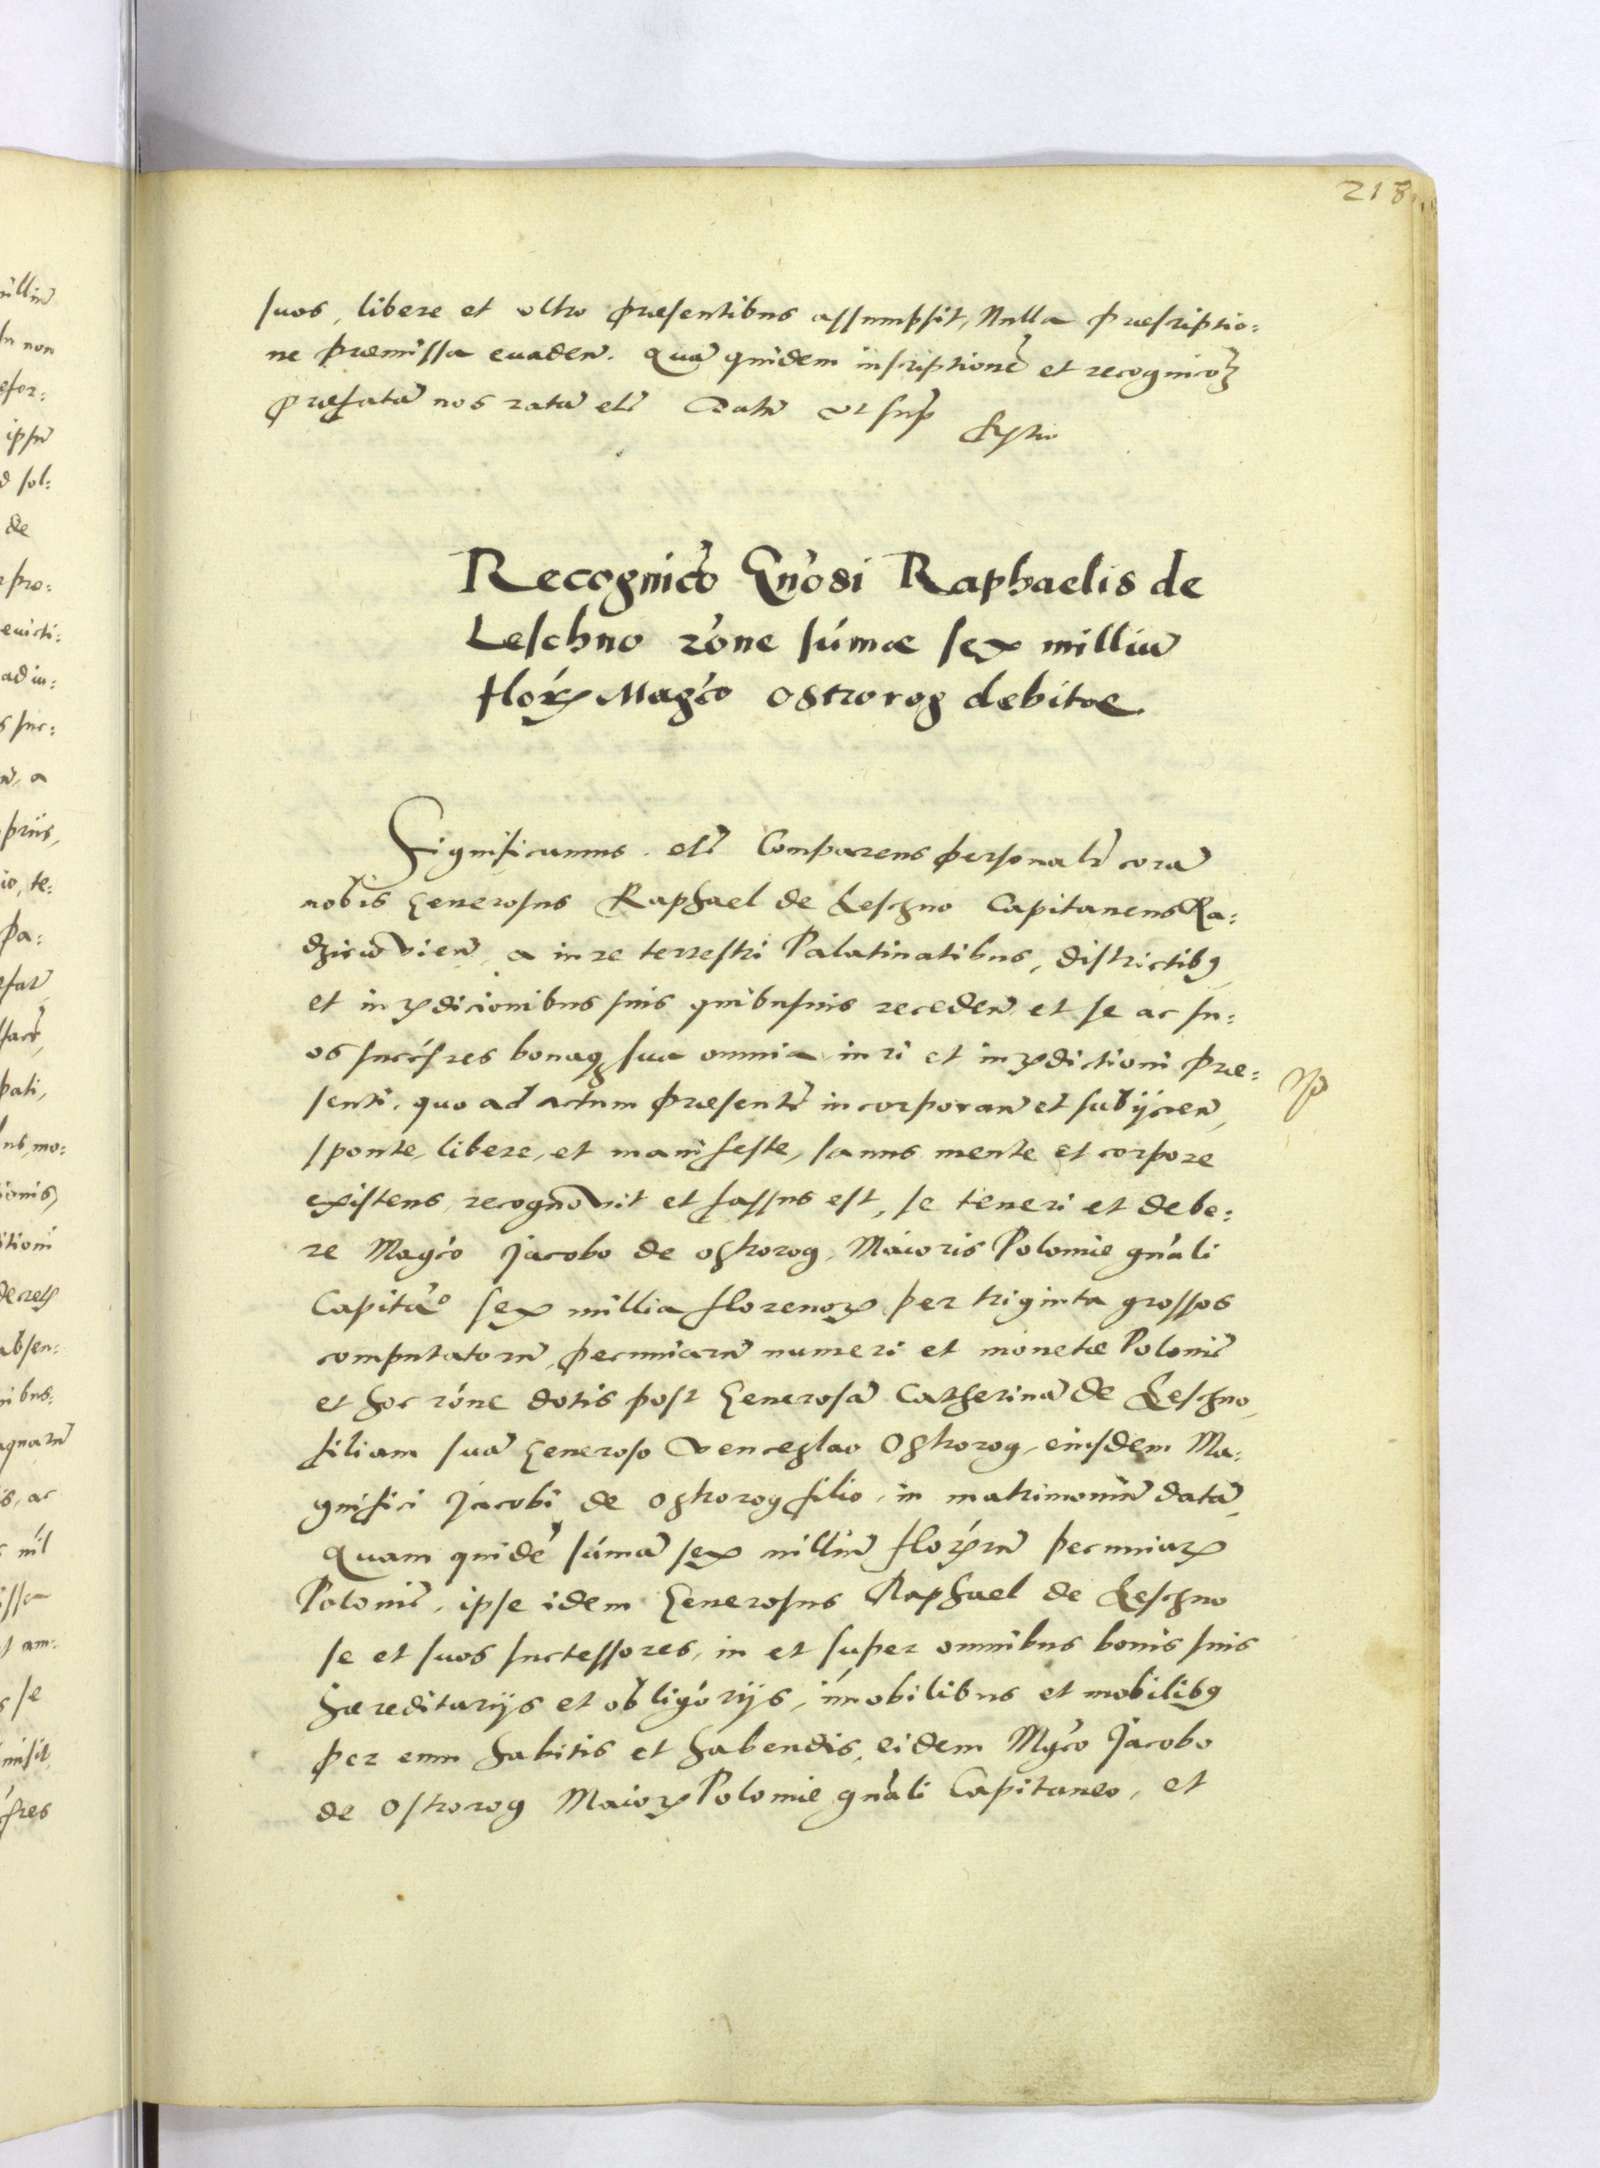 218
suos, libere et ultro præsentibus assumpsit, Nulla præscriptio:
ne præmissa euaden. Quã quidem inscriptionẽ et recognicõẽ
præfatã nos ratã etc̃ Datũ vt sup̃
Recognic̃o Gñosi Raphaelis de
Leschno rõne sũmæ sex milliũ
flor̃ Mag̃co Ostrorog debitæ
Significamus. etc̃ Comparens personalr̃ corã
nobis Generosus Raphael de Leschno Capitaneus Ra:
dzieiovien̄, a iure terrestri Palatinatibus, districtibꝰ
et iurisdicionibus suis quibusuis receden̄ et se ac su:
os succ̃sres bonaqꝫ sua omnia iuri et iurisdictioni præ:
senti, quo ad actum præsentẽ incorporan̄ et subijcien̄,
sponte, libere, et manifeste, sanus mente et corpore
existens, recognouit et fassus est, se teneri et debe:
re Mag̃co Jacobo de Ostrorog, Maioris Polonie gñali
Capitã° sex millia florenoꝝ per triginta grossos
computatorũ, pecuniarũ numeri et monetæ Polonic̃
et hoc rõne dotis post Generosã Catherinã de Leschno,
filiam suã Generoso Venceslao Ostrorog, eiusdem Ma:
gnifici Jacobi de Ostrorog filio, in matrimoniũ datã,
Quam quidẽ sũmã sex milliũ flor̃rũ pecuniaꝝ
Polonic̃, ipse idem Generosus Raphael de Leschno
se et suos successores, in et super omnibus bonis suis
hæreditarijs et obligõrijs, im̃obilibus et mobilibꝰ
per eum habitis et habendis, eidem Mg̃co Jacobo
de Ostrorog Maioꝝ Polonie gñali Capitaneo, et